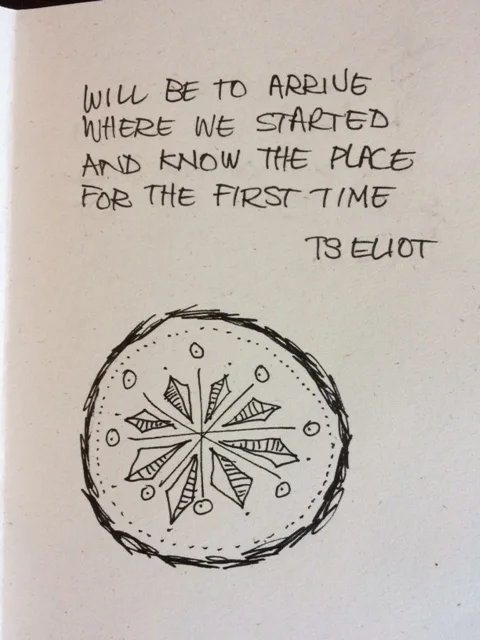 WILL BE TO ARRIVE
WHERE WE STARTED
AND KNOW THE PLACE
FOR THE FIRST TIME
TS ELIOT